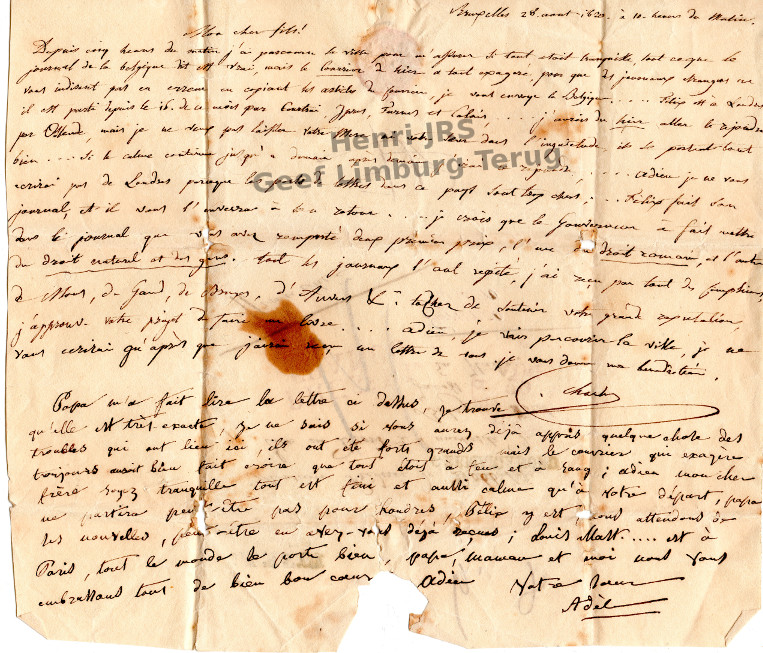 Bruxelles 28 aout 1830 à 10 heures du Matin.
Mon cher fils!
Depuis cinq heures du matin j'ai parcouru la ville pour m'assurer si tout etait tranquille, tout ce que le
journal de la Belgique dit est vrai, mais le courrier d'hier a tout exageré, pour que des journaux étrangers ne
vous induisent pas en erreur en copiant les articles du courrier, je vous envoye le Belgique.... Felix est à Londres
il est parti depuis le 16. de ce mois par Courtrai Ypres, Furnes et Calais..... j'aurois du hier aller le rejoindre
par Ostende, mais je ne veux pas laisser votre Mere ni votre soeur dans l'inquietude, ils se portent tout
bien.... Si le calme continue jusqu'à demain après demain, ..... adieu je ne vous
ecrirai pas de Londres parceque les ports de lettres dans ce pays sont trop chers.... Felix fait son
journal, et il vous l'enverra à son retour.... je crois que le Gouverneur a fait mettre
dans le journal que vous avez remporté deux premiers prix, l'un du droit romain, et l'autre
du droit naturel et des gens.. tout les journaux l'ont repété, j'ai recu par tout des complimens
de Mons, de Gand, de Bruges, d'Anvers &a. tachez de soutenir votre grande reputation,
j'approuve votre projet de faire un .... adieu, je vais parcourir la ville, je ne
vous ecrirai qu'après que j'aurai reçu une lettre de vous je vous donne ma benediction.
Charles
Papa m'a fait lire la lettre ci dessus, je trouve
qu'elle est très exacte, je ne sais si vous aurez déjà appris quelque chose des
troubles qui ont lieu ici, ils ont été forts grands mais le courrier qui exagère
toujours auroit bien fait croire que tout étoit à feu et à sang; adieu mon cher
frère soyez tranquille tout est fini et aussi calme qu'à votre départ, papa
ne partira peut-être pas pour Londres, Félix y est, nous attendons de
ses nouvelles, peut-être en avez-vous déjà reçues; Louis Mast.... est à
Paris, tout le monde se porte bien, papa, maman et moi nous vous
embrassons tous de bien bon coeur adieu Votre soeur
Adèle
Henri JRS
Geef Limburg Terug